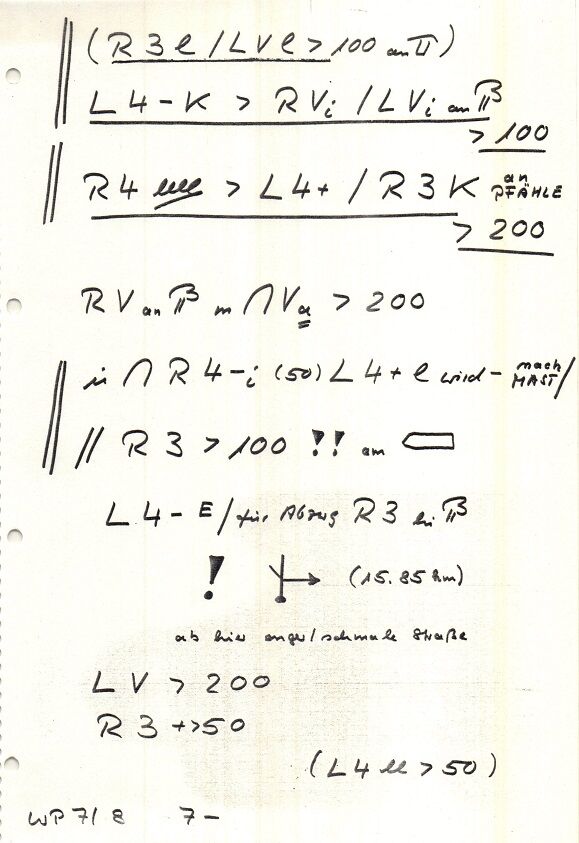 (R 3 e / LVe > 100 an II)
L 4 - K > RVi / LVi an
> 100
R4 eee > L4+ / R3K an PFÄHLE
> 200
RV an m ∩ Va > 200
in ∩ R 4 - i (50) L 4 + e wird - nach MAST/
// R 3 > 100 !! am
L 4 - E / für Abzwg R3 bei
! (15.85 km)
ab hier enger/schmale Straße
LV > 200
R 3 +>50
(L4 ee > 50)
WP 7/8 7-